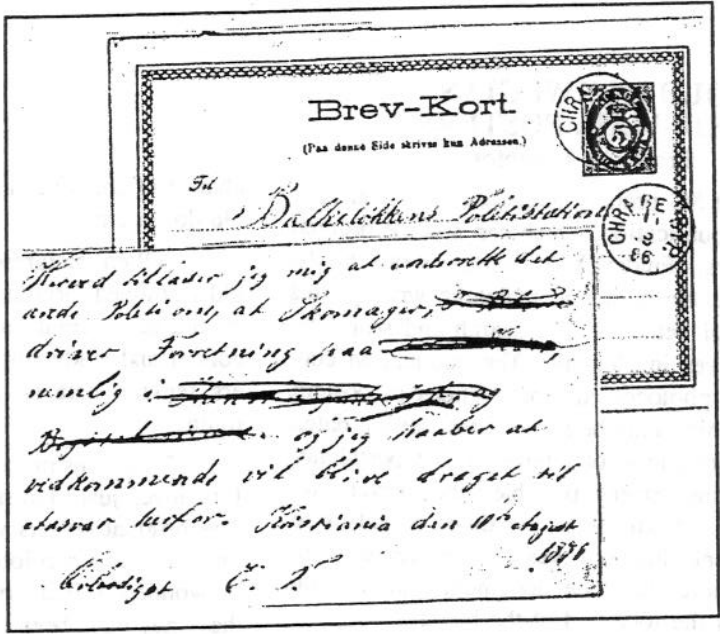 Brev-Kort.
(Paa denne Side skrives kun Adressen.)
Til
Balkeløkkens Politistation
CHRA
5
CHRA
11
8
86
Herved tillader jeg mig at underrette det
ærede Politi om, at Skomager,
driver Forretning paa
nemlig i
og jeg haaber at
vidkommende vil blive draget til
Ansvar herfor. Kristiania den 10de August
1886
Ærbødigst